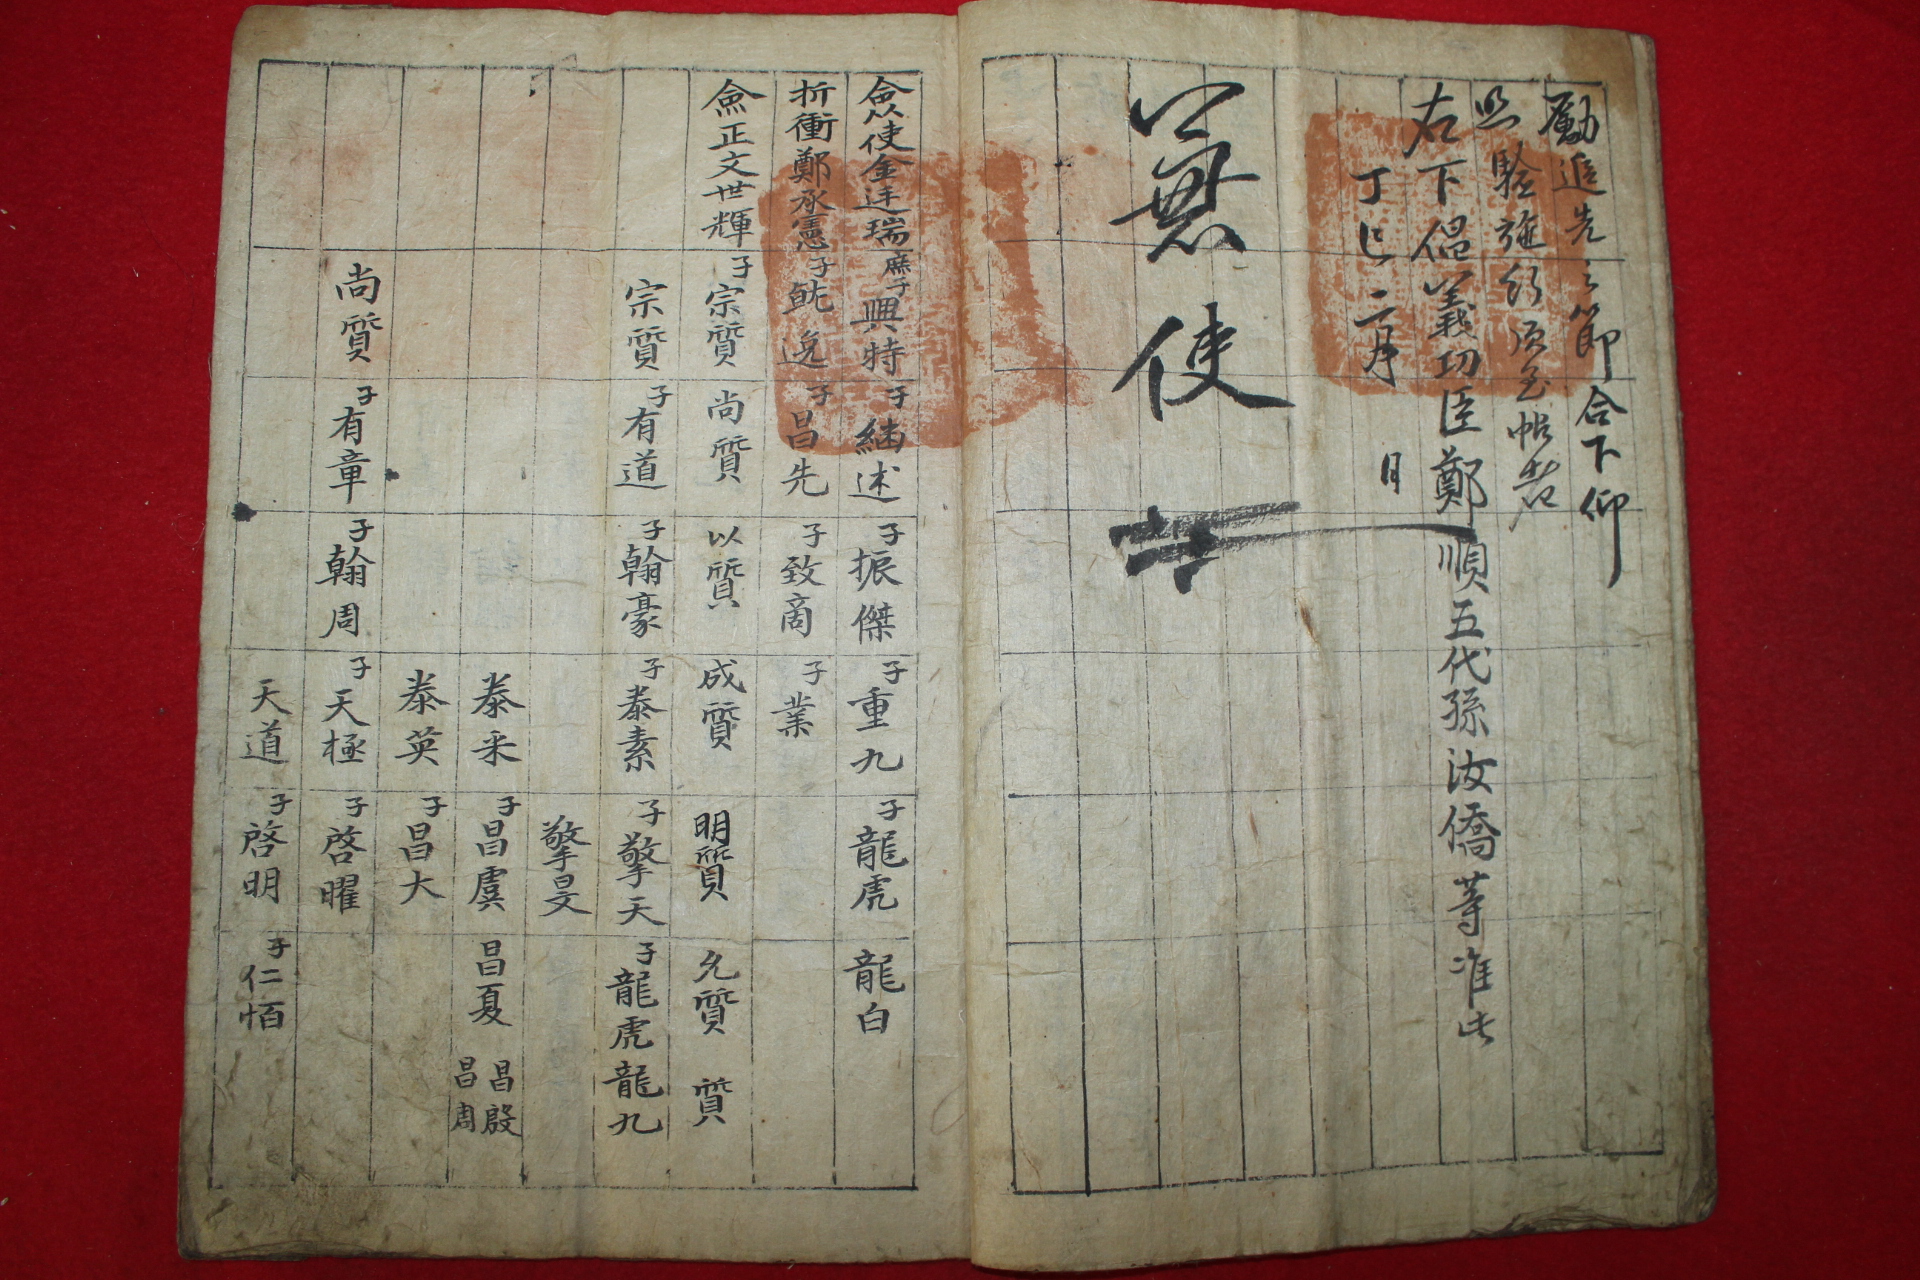 勵追先之節合下仰
照驗施行須至帖者
右下倡義功臣鄭順五代孫汝僑等准此
丁巳二月 日
兼使
僉使金廷瑞 庶子興特 子継述 子振傑 子重九 子龍虎 龍白
折衝鄭承憲 子 逸 子昌先 子致商 子業
僉正文世輝 子宗質 尚質 以質 成質 明質 允質 質
宗質 子有道 子翰豪 子泰素 子擎天 子龍虎 龍九
擎昊
泰采 子昌虞 昌夏 昌殷 昌周
泰英 子昌大
尚質 子有章 子翰周 子天極 子啓曜
天道 子啓明 子仁栢